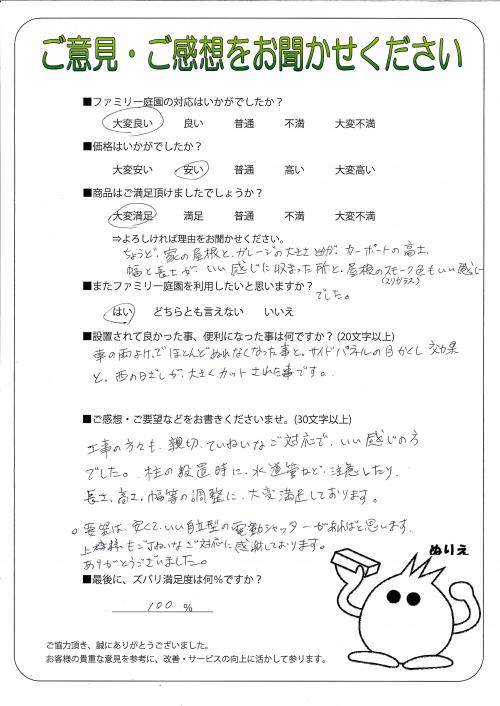 ご意見・ご感想をお聞かせください
■ファミリー庭園の対応はいかがでしたか？
大変良い 良い 普通 不満 大変不満
■価格はいかがでしたか？
大変安い 安い 普通 高い 大変高い
■商品はご満足頂けましたでしょうか？
大変満足 満足 普通 不満 大変不満
⇒よろしければ理由をお聞かせください。
ちょうど、家の屋根と、ガレージの大きさとが、カーポートの高さ、
幅と長さが、いい感じに収まった所と、屋根のスモーク色もいい感じ
(スリガラス)
でした。
■またファミリー庭園を利用したいと思いますか？
はい どちらとも言えない いいえ
■設置されて良かった事、便利になった事は何ですか？(20文字以上)
車の雨よけでほとんどぬれなくなった事と、サイドパネルの目かくし効果
と、西の日ざしが、大きくカットされた事です。
■ご感想・ご要望などをお書きくださいませ。(30文字以上)
工事の方々も、親切、ていねいなご対応で、いい感じの方
でした。柱の設置時に、水道管など、注意したり、
長さ、高さ、幅等の調整に、大変満足しております。
○要望は、安くて、いい自立型の電動シャッターがあればと思います、
上様もごていねいなご対応に感謝しております。
ありがとうございました。
ぬりえ
■最後に、ズバリ満足度は何％ですか？
100 %
ご協力頂き、誠にありがとうございました。
お客様の貴重な意見を参考に、改善・サービスの向上に活かして参ります。